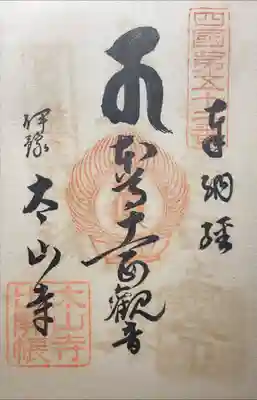 四國第五十二番
奉納經
本尊十一面觀音
伊豫 太山寺
太山寺